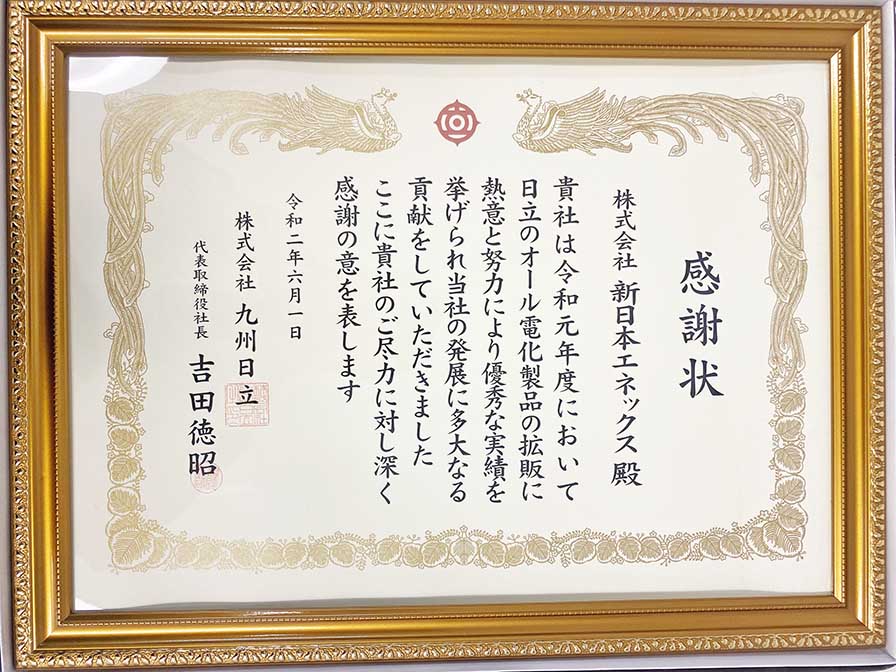 感謝状
株式会社 新日本エネックス 殿
貴社は令和元年度において
日立のオール電化製品の拡販に
熱意と努力により優秀な実績を
挙げられ当社の発展に多大なる
貢献をしていただきました
ここに貴社のご尽力に対し深く
感謝の意を表します
令和二年六月一日
株式会社 九州日立
代表取締役社長 吉田徳昭